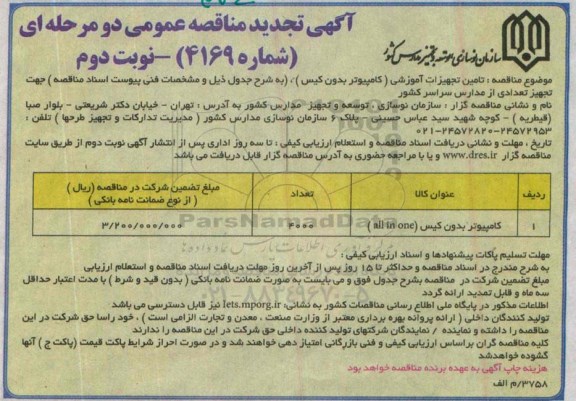 آگهی تجدید مناقصه عمومی دو مرحله ای
(شماره ۴۱۶۹) –نوبت دوم
سازمان نوسازی، توسعه و تجهیز مدارس کشور
موضوع مناقصه : تامین تجهیزات آموزشی ( کامپیوتر بدون کیس ) ، (به شرح جدول ذیل و مشخصات فنی پیوست اسناد مناقصه ) جهت
تجهیز تعدادی از مدارس سراسر کشور
نام و نشانی مناقصه گزار : سازمان نوسازی ، توسعه و تجهیز مدارس کشور به آدرس : تهران - خیابان دکتر شریعتی - بلوار صبا
(قیطریه ) - کوچه شهید سید عباس حسینی - پلاک ۶ سازمان نوسازی مدارس کشور ( مدیریت تدارکات و تجهیز طرحها ) تلفن :
۰۲۱-۲۴۵۷۲۸۲۰-۲۴۵۷۲۹۵۳
تاریخ ، مهلت و نشانی دریافت اسناد مناقصه و استعلام ارزیابی کیفی : تا سه روز اداری پس از انتشار آگهی نوبت دوم از طریق سایت
مناقصه گزار www.dres.ir و یا با مراجعه حضوری به آدرس مناقصه گزار قابل دریافت می باشد
ردیف عنوان کالا تعداد مبلغ تضمین شرکت در مناقصه (ریال )
( از نوع ضمانت نامه بانکی )
۱ کامپیوتر بدون کیس (all in one ) ۴۰۰۰ ۳/۲۰۰/۰۰۰/۰۰۰
ParsNamadData
مهلت تسلیم پاکات پیشنهادها و اسناد ارزیابی کیفی :
به شرح مندرج در اسناد مناقصه و حداکثر تا ۱۵ روز پس از آخرین روز مهلت دریافت اسناد مناقصه و استعلام ارزیابی
مبلغ تضمین شرکت در مناقصه بشرح جدول فوق و می بایست به صورت ضمانت نامه بانکی ( بدون قید و شرط ) با مدت اعتبار حداقل
سه ماه و قابل تمدید ارائه گردد
اطلاعات مذکور در پایگاه ملی اطلاع رسانی مناقصات کشور به نشانی iets.mporg.ir نیز قابل دسترسی می باشد
تولید کنندگان داخلی ( ارائه پروانه بهره برداری معتبر از وزارت صنعت ، معدن و تجارت الزامی است ) ، خود راسا حق شرکت در این
مناقصه را داشته و نماینده / نمایندگان شرکتهای تولید کننده داخلی حق شرکت در این مناقصه را ندارند
کلیه مناقصه گران براساس ارزیابی کیفی و فنی بازرگانی امتیاز دهی خواهند شد و در صورت احراز شرایط پاکت قیمت (پاکت ج ) آنها
گشوده خواهدشد
هزینه چاپ آگهی به عهده برنده مناقصه خواهد بود
۳۷۵۸/م الف